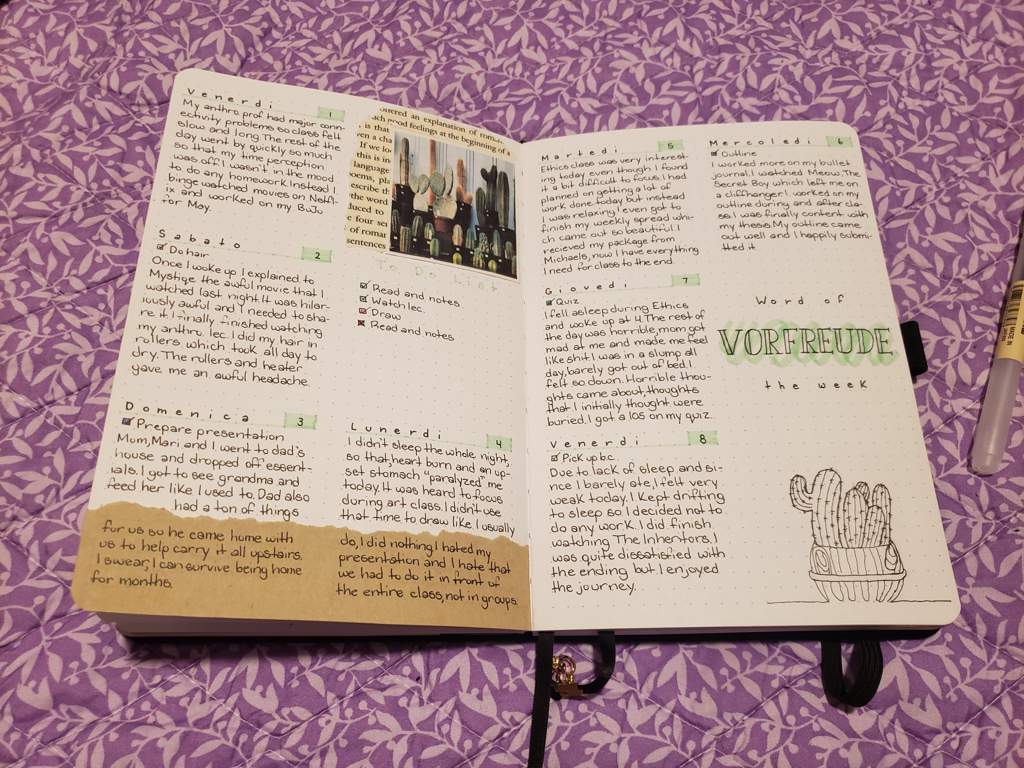 Venerdi
1
My anthro prof had major conn-
ectivity problems so class felt
slow and long. The rest of the
day went by quickly so much
so that my time perception
was off. I wasn't in the mood
to do any homework. Instead I
binge watched movies on Netfl-
ix and worked on my BuJo
for May.
Sabato
2
Do hair
Once I woke up I explained to
Mystige the awful movie that I
watched last night. It was hilar-
iously awful and I needed to sha-
re it. I finally finished watching
my anthro. lec. I did my hair in
rollers which took all day to
dry. The rollers and heater
gave me an awful headache.
Domenica
3
Prepare presentation
Mum, Mari and I went to dad's
house and dropped off essent-
ials. I got to see grandma and
feed her like I used to. Dad also
had a ton of things
for us so he came home with
us to help carry it all upstairs.
I swear, I can survive being home
for months.
offered an explanation of roman
such good feelings at the beginning of a
is that
en a cha
If we lo
this is in
language
poems, pla
escribe th
the word
duced to
e four se
of romar
sentences
To Do List
Read and notes
Watch lec.
Draw
Read and notes
Lunerdi
4
I didn't sleep the whole night,
so that, heart burn and an up-
set stomach "paralyzed" me
today. It was heard to focus
during art class. I didn't use
that time to draw like I usually
do, I did nothing. I hated my
presentation and I hate that
we had to do it in front of
the entire class, not in groups.
Martedi
5
Ethics class was very interest-
ing today even though I found
it a bit difficult to focus. I had
planned on getting a lot of
work done today but instead
I was relaxing. I even got to
finish my weekly spread whi-
ch came out so beautiful. I
recieved my package from
Michaels, now I have everything
I need for class to the end.
Mercoledi
6
Outline
I worked more on my bullet
journal. I watched Meow, The
Secret Boy which left me on
a cliffhanger. I worked on my
outline during and after cla-
ss. I was finally content with
my thesis. My outline came
out well and I happily submi-
tted it
Giovedi
7
Quiz
I fell asleep during Ethics
and woke up at 4. The rest of
the day was horrible, mom got
mad at me and made me feel
like shit. I was in a slump all
day, barely got out of bed. I
felt so down. Horrible thou-
ghts came about, thoughts
that I initially thought were
buried. I got a 105 on my quiz.
Venerdi
8
Pick up b.c.
Due to lack of sleep and si-
nce I barely ate, I felt very
weak today. I kept drifting
to sleep so I decided not to
do any work. I did finish
watching The Inheritors. I
was quite dissatisfied with
the ending but I enjoyed
the journey.
Word of
VORFREUDE
the week
MADE IN